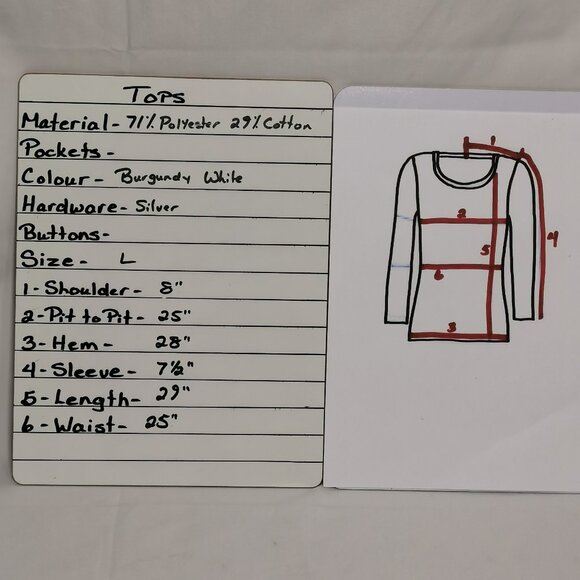 Tops
Material - 71% Polyester 29% Cotton
Pockets -
Colour - Burgundy White
Hardware - Silver
Buttons -
Size - L
1 - Shoulder - 8"
2 - Pit to Pit - 25"
3 - Hem - 28"
4 - Sleeve - 7½"
5 - Length - 29"
6 - Waist - 25"
1
2
4
5
6
3